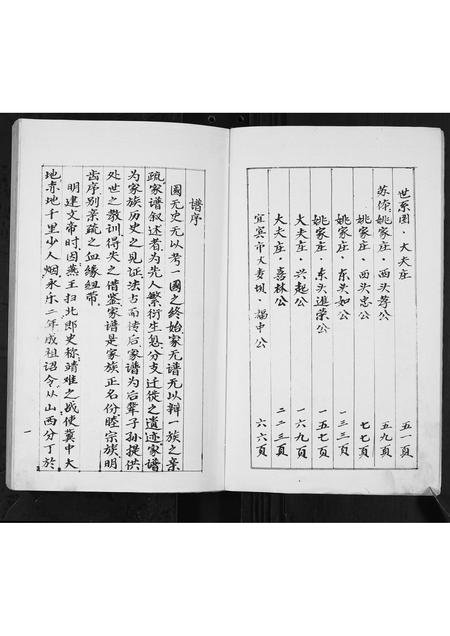 世系图·大夫庄 五一頁
苏條姚家庄·西头芳公 五九頁
姚家庄·西头忠公 七七頁
姚家庄·东头如公 一三三頁
姚家庄·东头進荣公 一五七頁
大夫庄·兴起公 一六九頁
大夫庄·喜林公 二二三頁
宜宾市大麦坝·福中公 六六頁
譜序
國无史无以考一國之终始家无譜无以辩一族之亲
疏家譜叙述者为先人繁衍生息分支迁徙之遺迹家谱
为家族历史之见证法占而诗后家谱为后辈子孙提供
处世之教训得失之借鉴家谱是家族正名份睦宗族明
齿序别亲疏之血缘纽带
明建文帝时因燕王扫北郎史称靖难之战使冀中大
地赤地千里少人烟永乐二年成祖诏令从山西分丁於
一